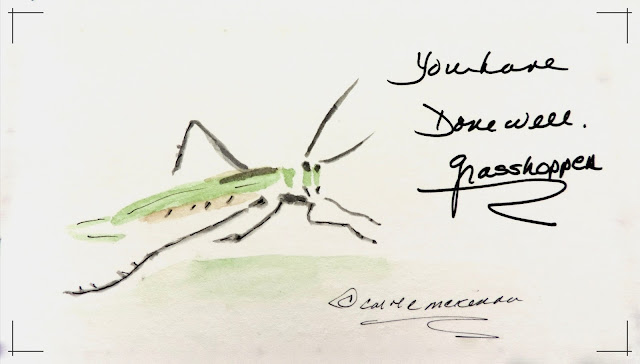 You have
Done well.
grasshopper
© Carrie McKenna